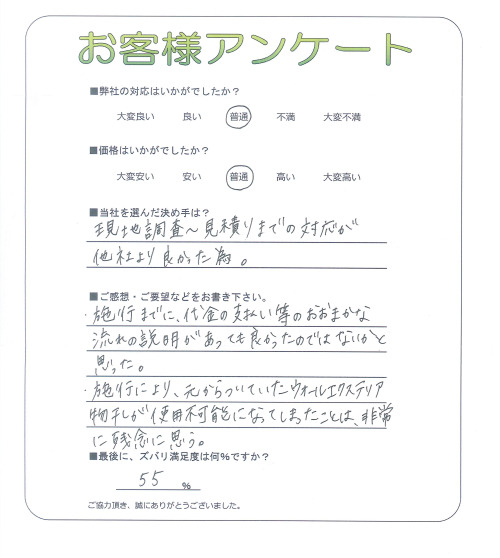 お客様アンケート
■弊社の対応はいかがでしたか？
大変良い 良い 普通 不満 大変不満
■価格はいかがでしたか？
大変安い 安い 普通 高い 大変高い
■当社を選んだ決め手は？
現地調査～見積りまでの対応が
他社より良かった為。
■ご感想・ご要望などをお書き下さい。
・施行までに、代金の支払い等のおおまかな
流れの説明があっても良かったのではないかと
思った。
・施行により、元からついていたウォールエクステリア
物干しが使用不可能になってしまったことは、非常
に残念に思う。
■最後に、ズバリ満足度は何％ですか？
55 ％
ご協力頂き、誠にありがとうございました。